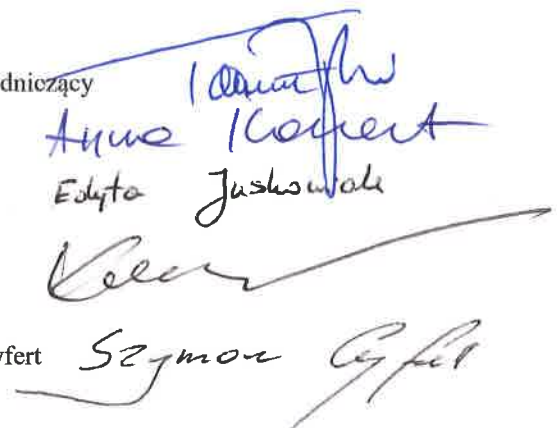 dniczący
Anna Konert
Edyta Juskowiak
yfert Szymon Cyfert